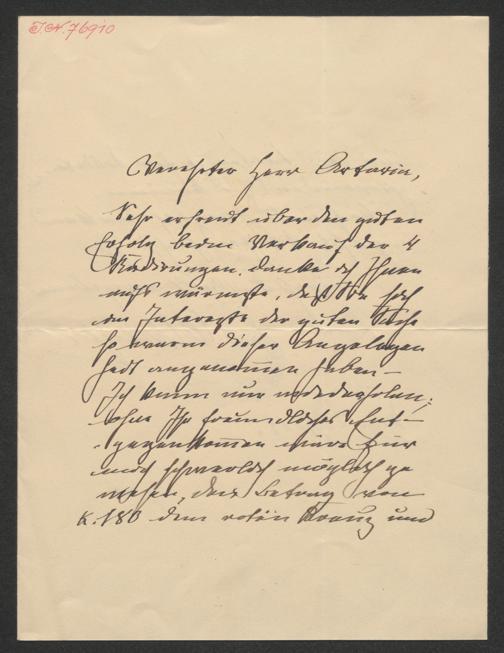 I.N. 76910
Verehrter Herr Artaria,
Sehr erfreut über den guten
Erfolg beim Verkauf der 4
Radirungen, danke ich Ihnen
aufs wärmste, daß Sie sich
im Interesse der guten Sache
so warm dieser Angelegen
heit angenommen haben –
Ich kann nur wiederholen,
ohne Ihr freundliches Ent-
gegenkommen wäre es mir
schwerlich möglich ge
wesen, den Betrag von
K. 180 dem roten Kreuz und